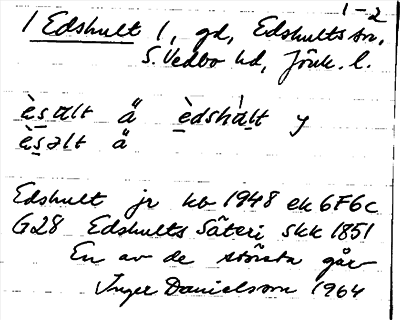 1-2
1 Edshult 1, gd, Edshults sn,
S. Vedbo hd, Jönk. l.
ès̲ɑlt ä è̲dshà̲lt y
ès̲əlt ä
Edshult jr kb 1948 ek 6F6c
G28 Edshults Säteri skk 1851
En av de största går
Inger Danielsson 1964